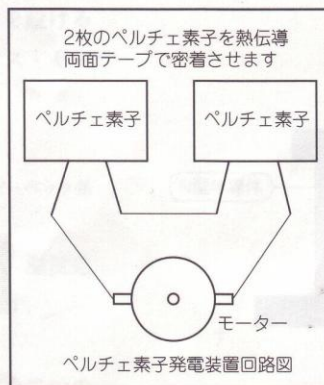 2枚のペルチェ素子を熱伝導
両面テープで密着させます
ペルチェ素子
ペルチェ素子
モーター
ペルチェ素子発電装置回路図